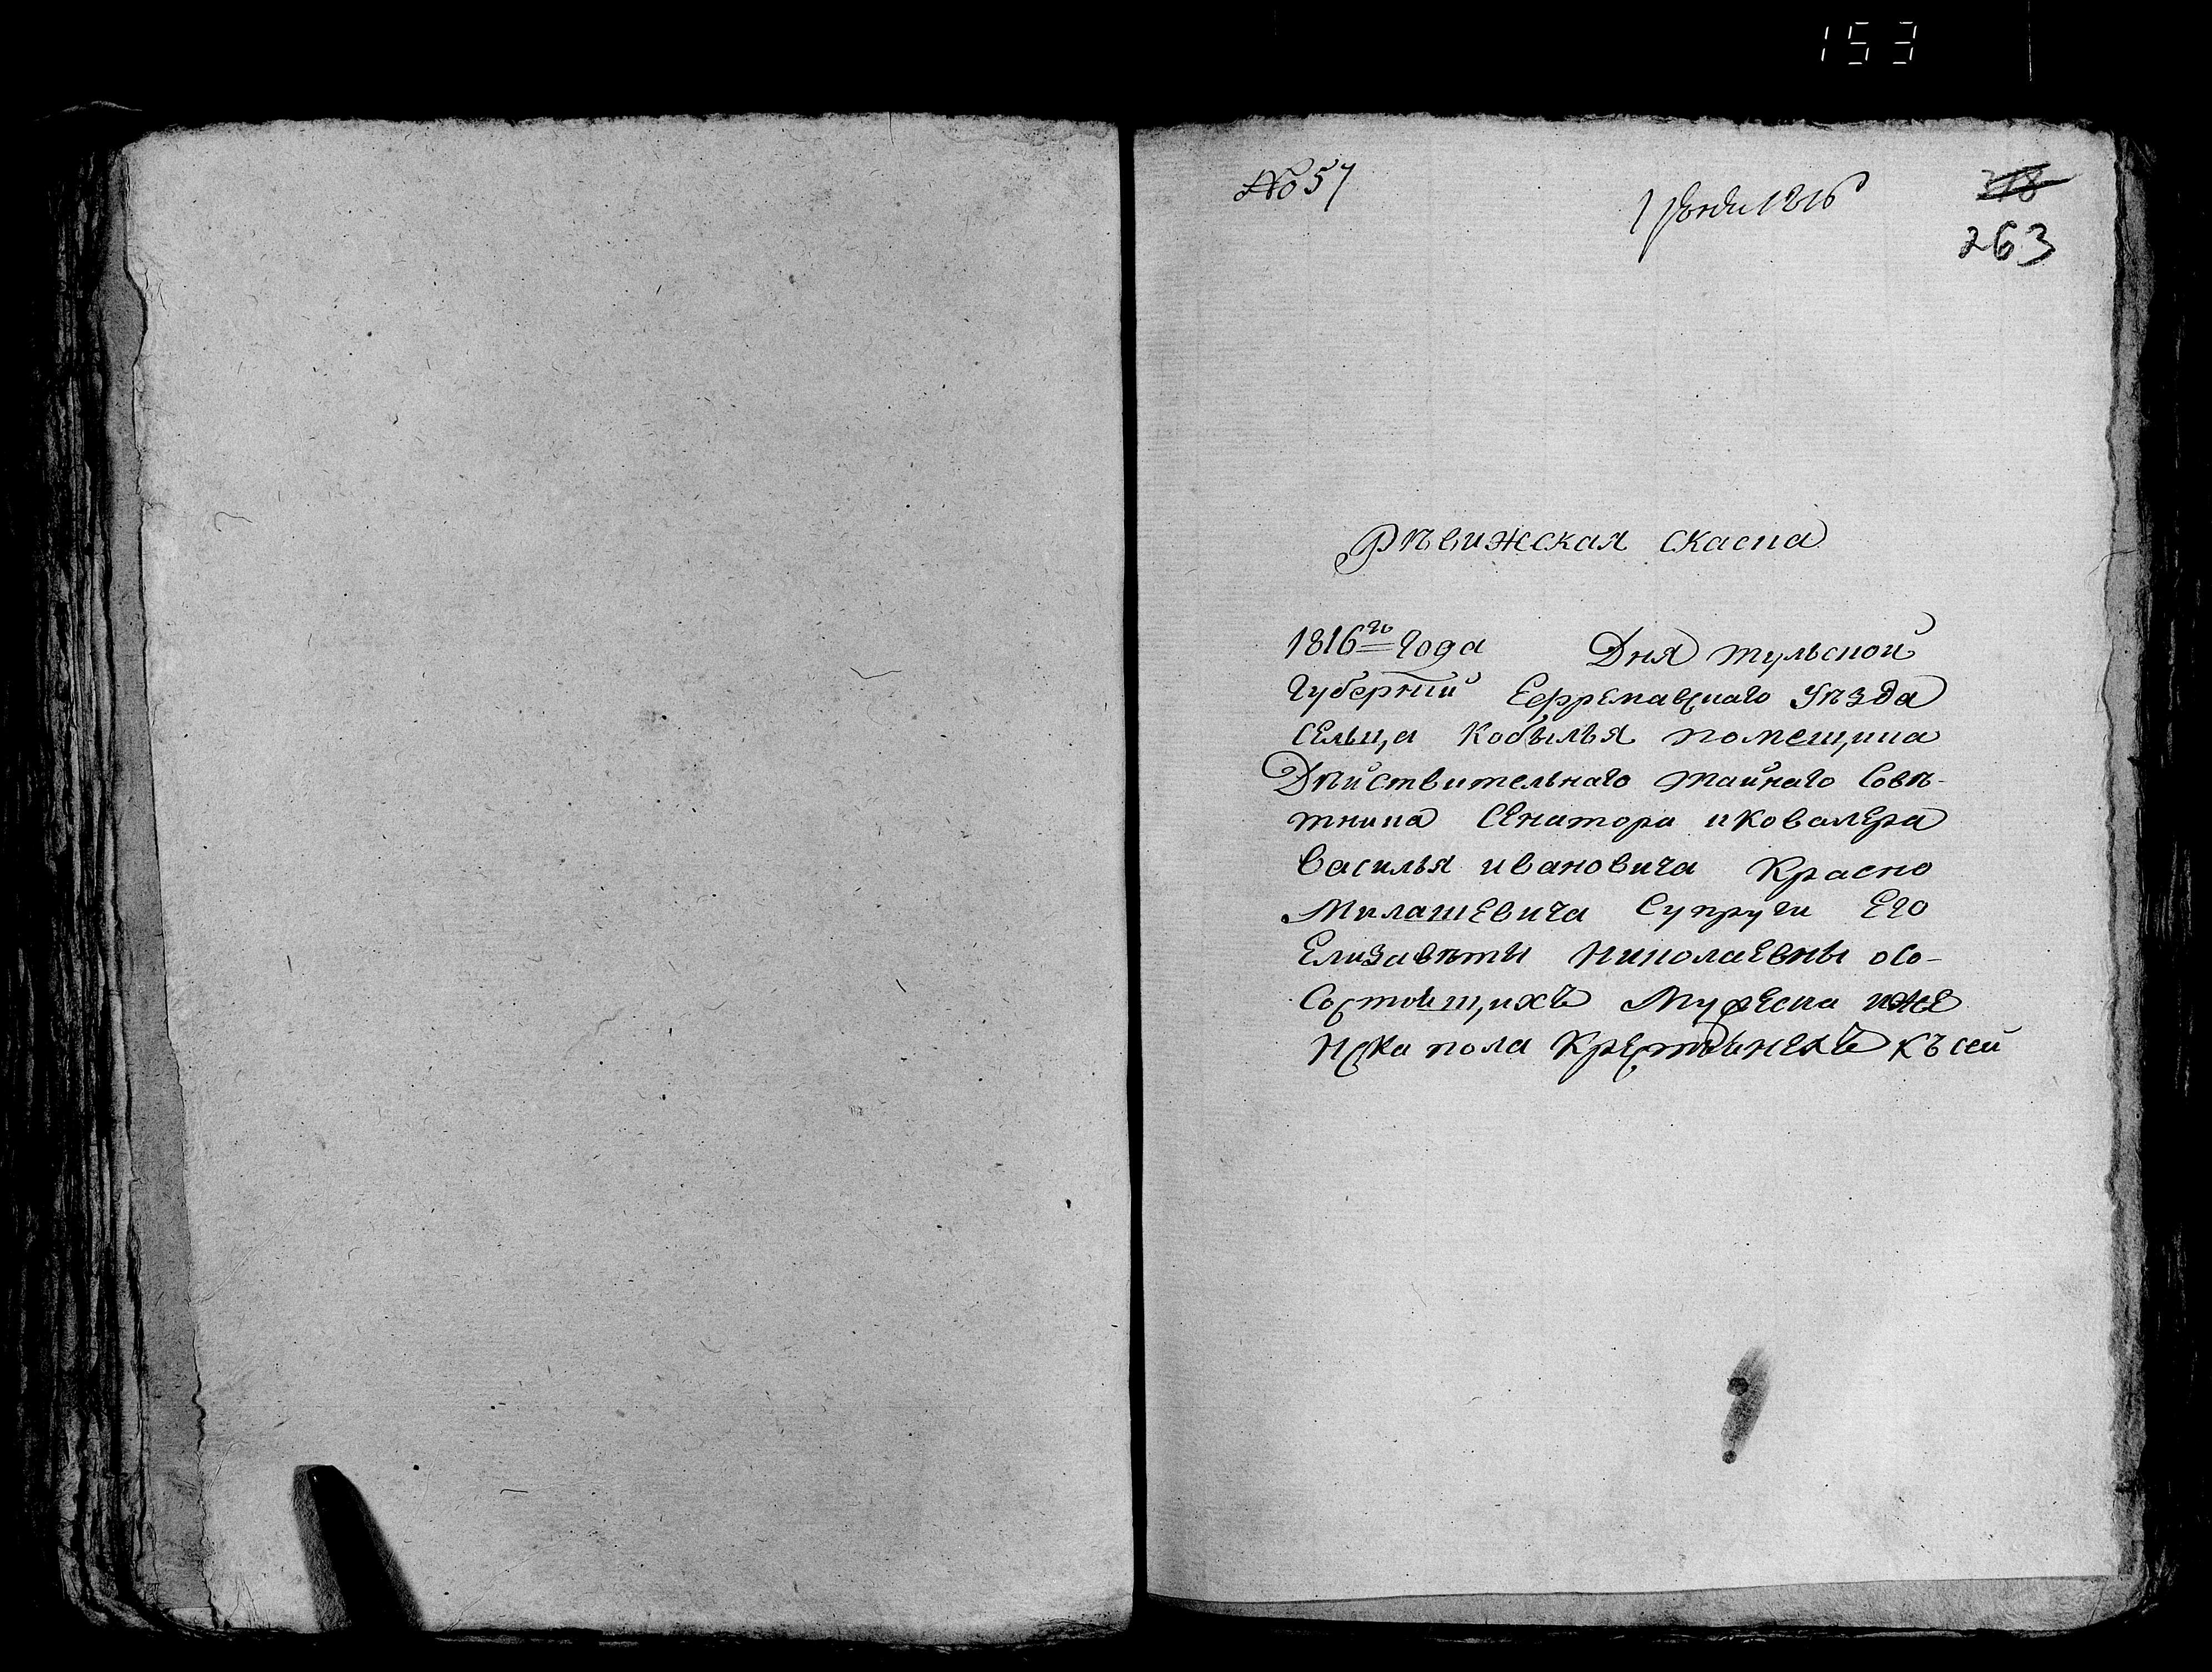 153
№ 57
1816
263
Рѣвижская скаска
1816го года Дня тульской
Губерніи Ефремавскаго Уѣзда
сельца Кобылья помещика
Дѣйствительнаго тайнаго Совѣ-
тника Сенатора и Ковалера
Василья ивановича Красно
Милашевича Супруги Его
Елизавѣты Николаевны осо-
Состоящихъ Мужеска иже
нска пола Крестьянехъ къ сей